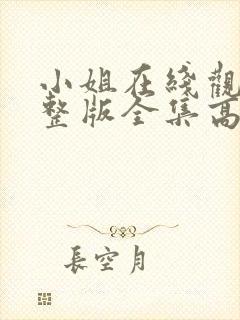 小姐在綫觀
整版全集高
長空月